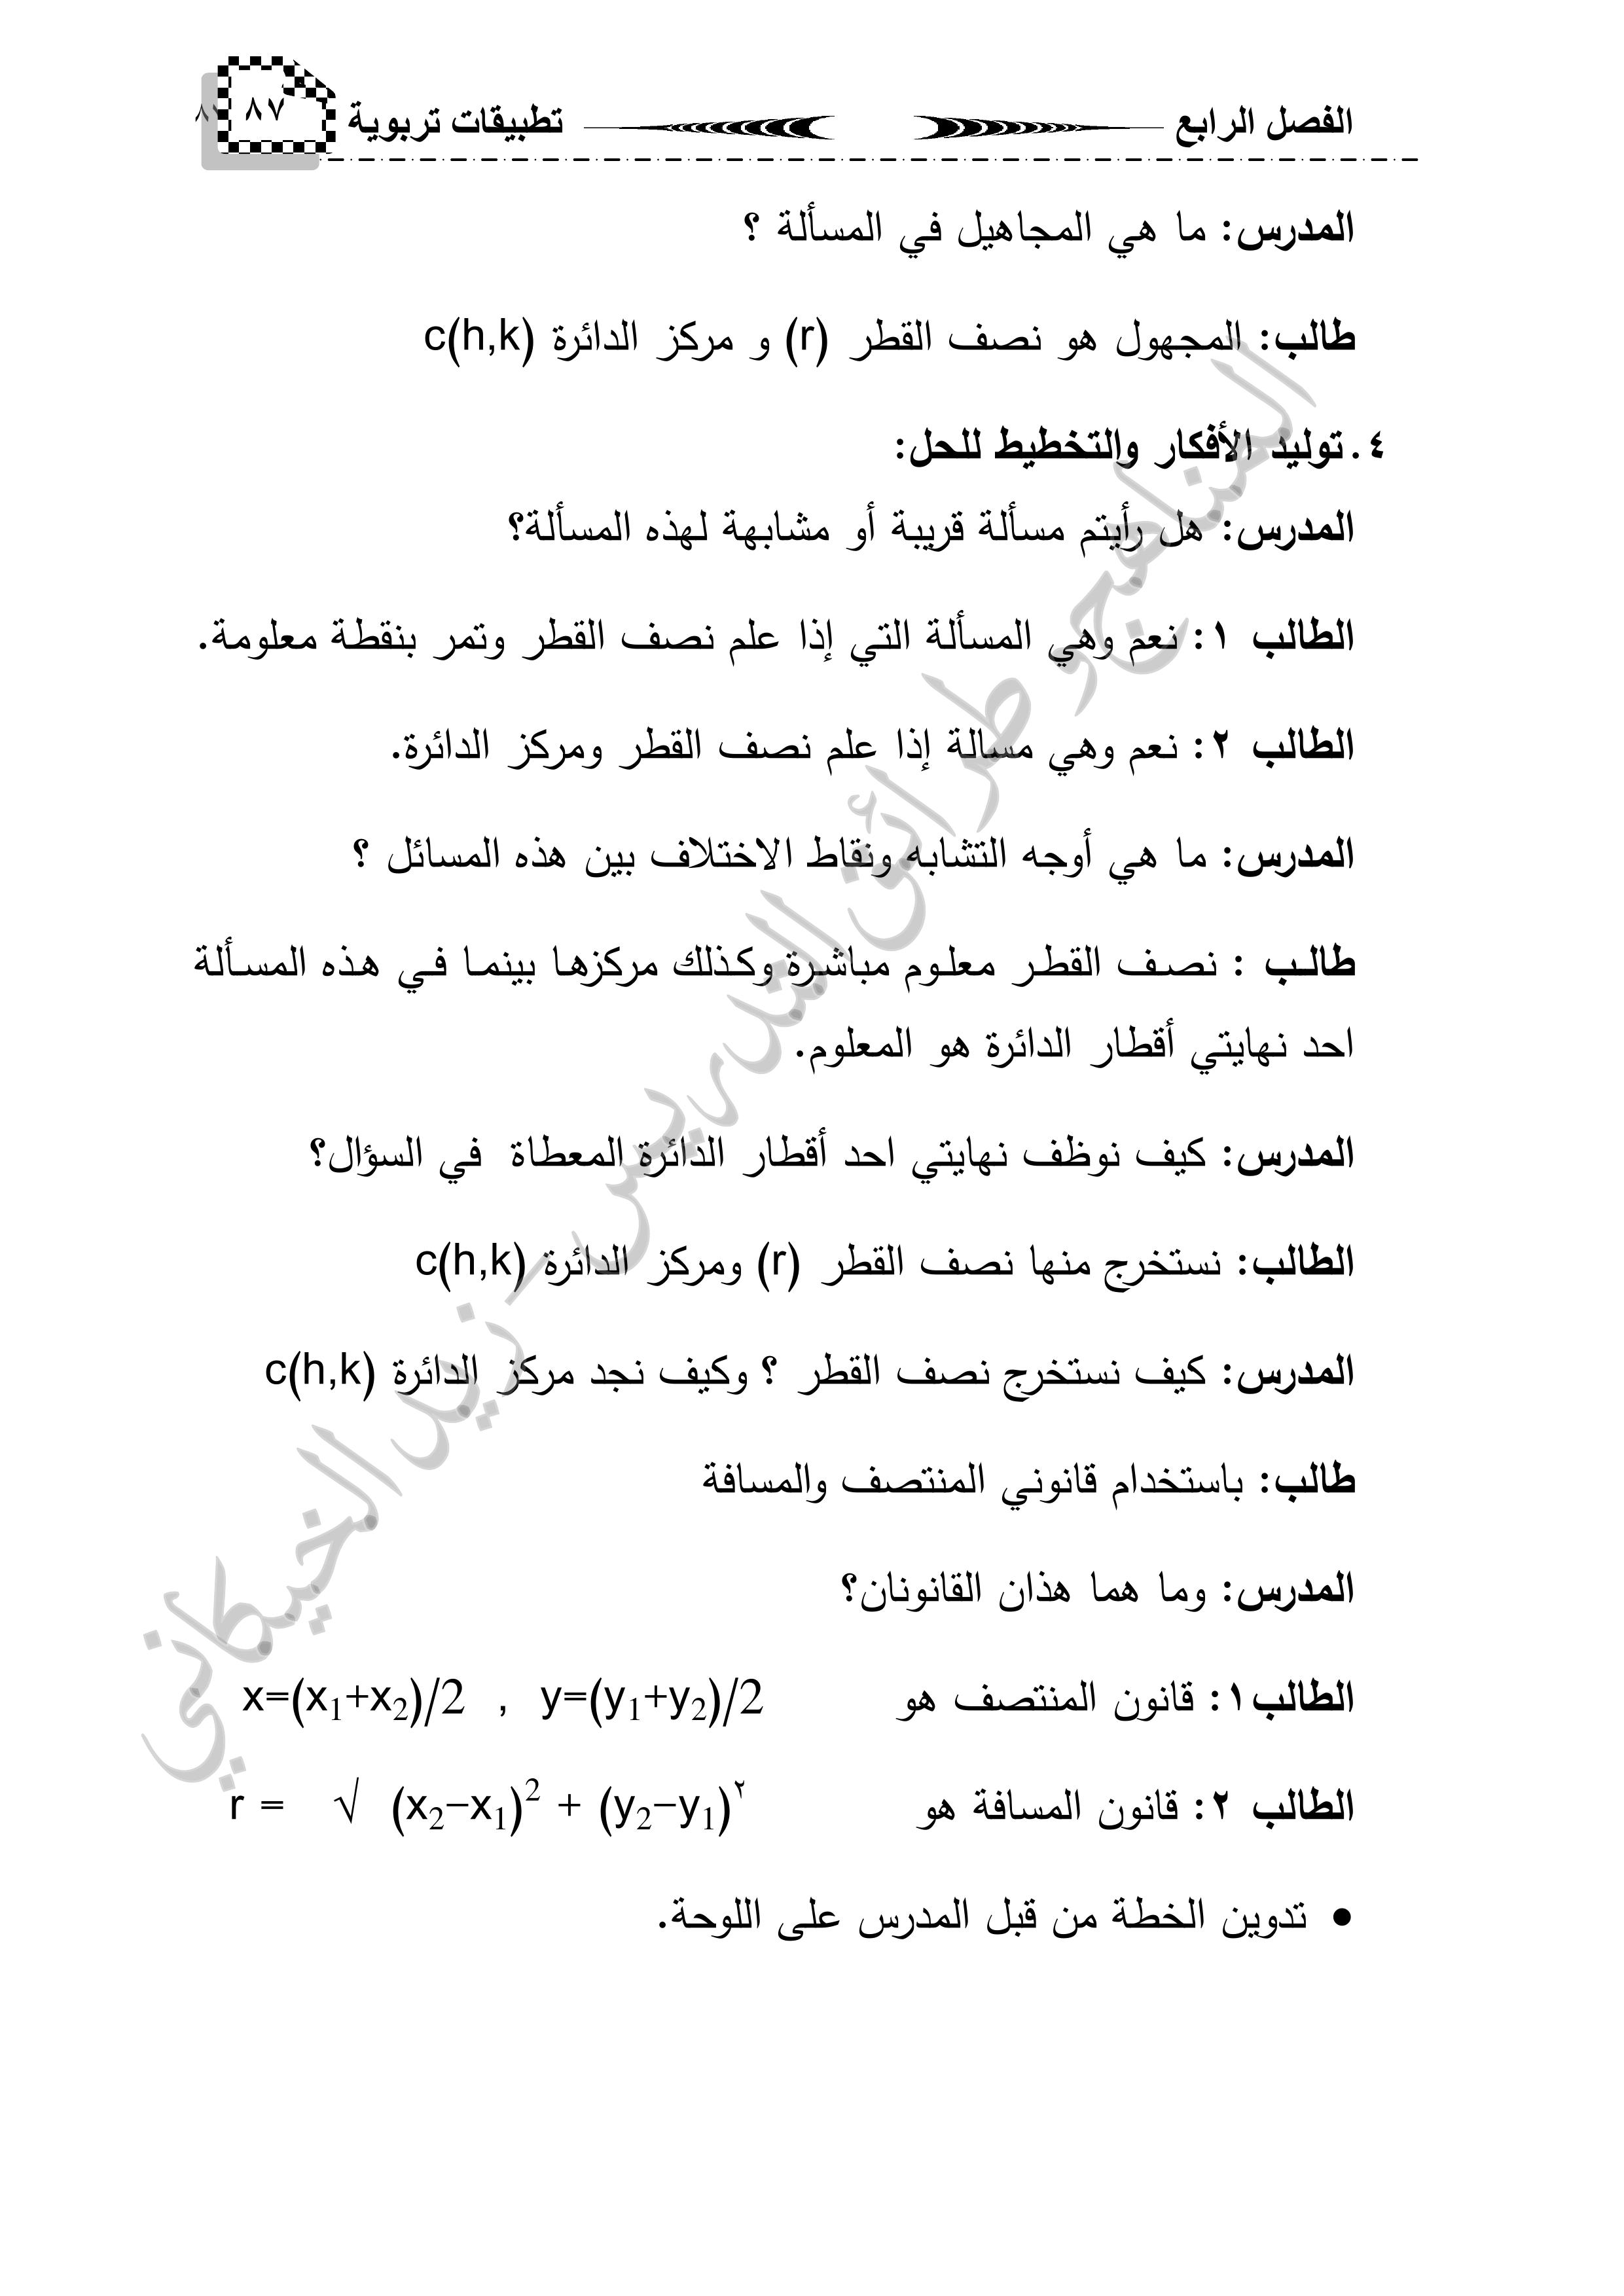 الفصل الرابع تطبيقات تربوية ٨٧
المدرس: ما هي المجاهيل في المسألة ؟
طالب: المجهول هو نصف القطر (r) و مركز الدائرة c(h,k)
٤. توليد الأفكار والتخطيط للحل:
المدرس: هل رأيتم مسألة قريبة أو مشابهة لهذه المسألة؟
الطالب ١: نعم وهي المسألة التي إذا علم نصف القطر وتمر بنقطة معلومة.
الطالب ٢: نعم وهي مسالة إذا علم نصف القطر ومركز الدائرة.
المدرس: ما هي أوجه التشابه ونقاط الاختلاف بين هذه المسائل ؟
طالب : نصف القطر معلوم مباشرة وكذلك مركزها بينما في هذه المسألة
احد نهايتي أقطار الدائرة هو المعلوم.
المدرس: كيف نوظف نهايتي احد أقطار الدائرة المعطاة في السؤال؟
الطالب: نستخرج منها نصف القطر (r) ومركز الدائرة c(h,k)
المدرس: كيف نستخرج نصف القطر ؟ وكيف نجد مركز الدائرة c(h,k)
طالب: باستخدام قانوني المنتصف والمسافة
المدرس: وما هما هذان القانونان؟
الطالب١: قانون المنتصف هو x=(x₁+x₂)/2 , y=(y₁+y₂)/2
الطالب ٢: قانون المسافة هو r = √ (x₂−x₁)² + (y₂−y₁)٢
• تدوين الخطة من قبل المدرس على اللوحة.
المناهج و طرائق التدريس - زيد الخيكاني